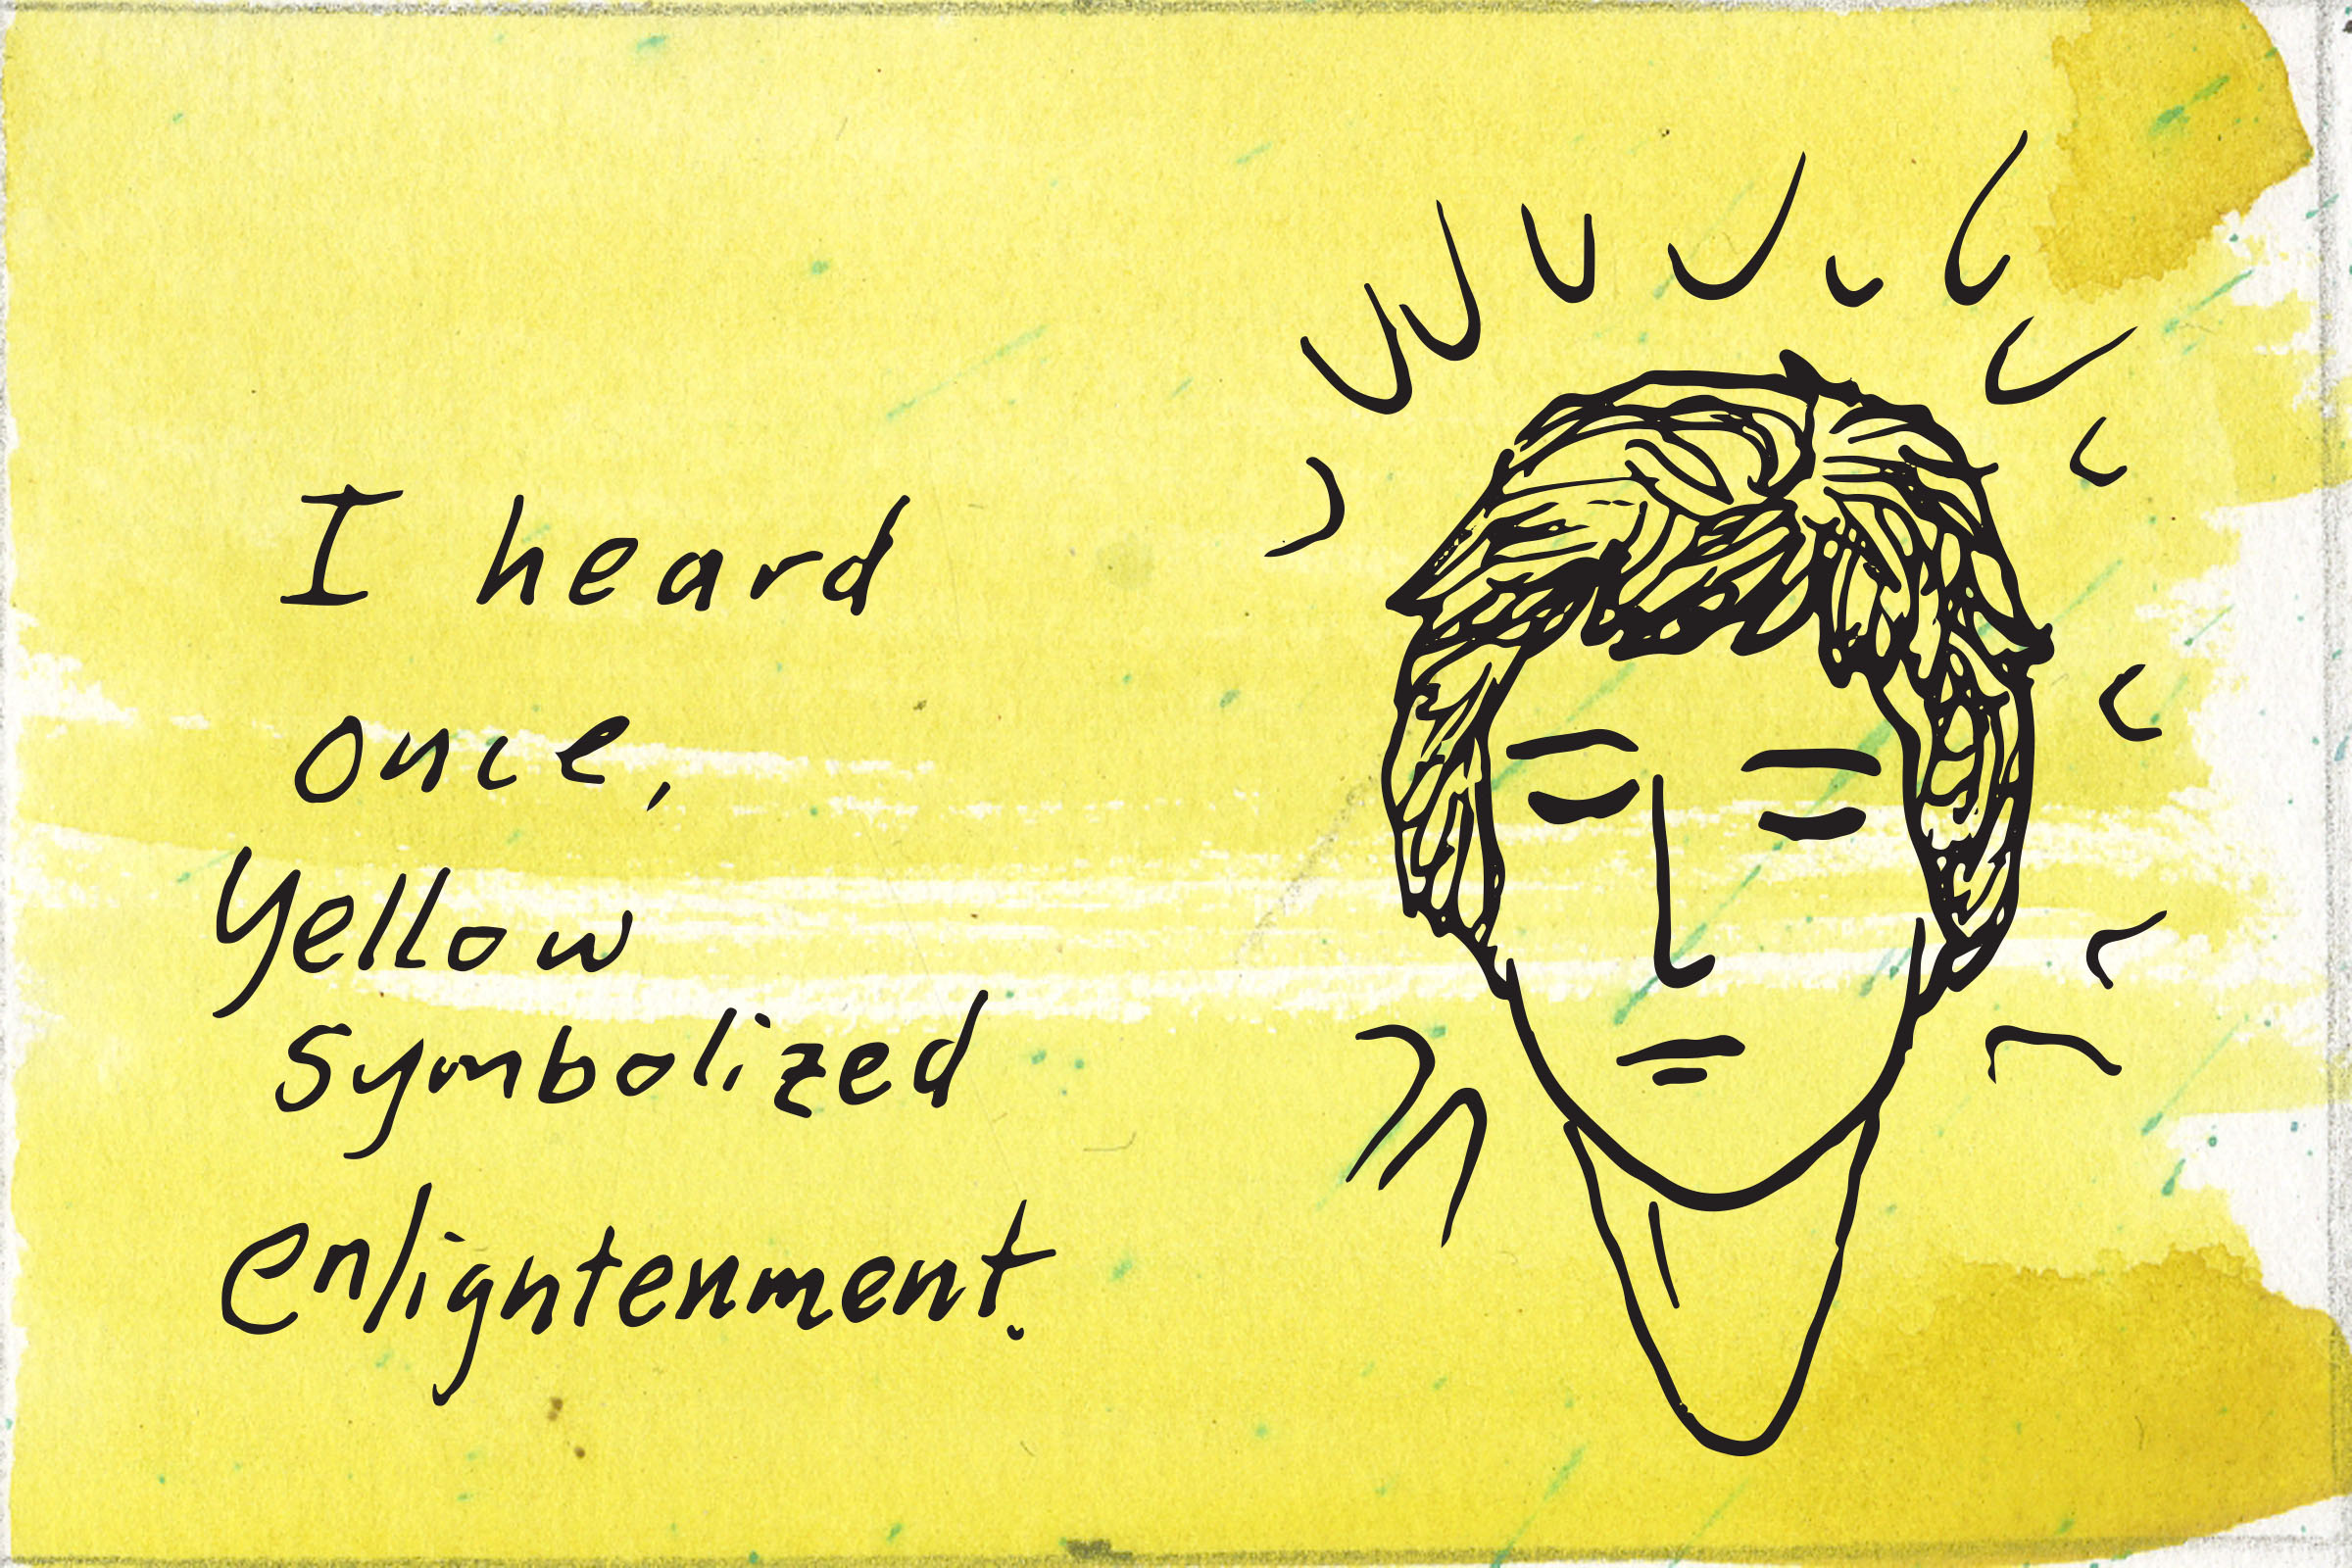 I heard
once,
yellow
symbolized
enlightenment.